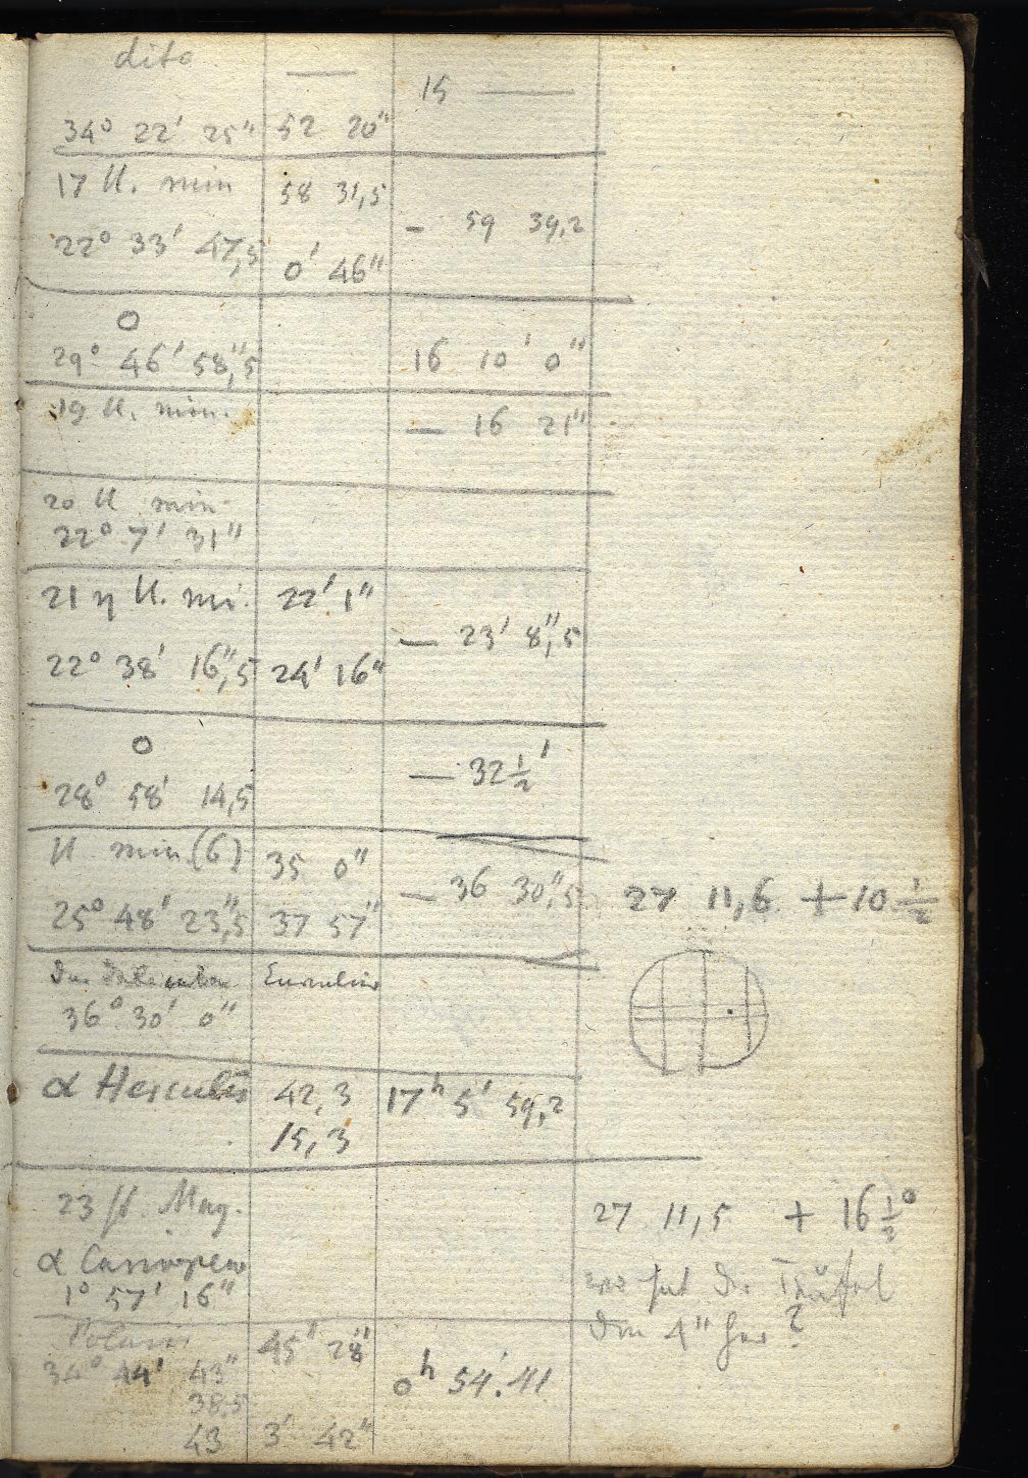 dito —
15 —
34° 22' 25" 52 20"
17 U. min 58 31,5
— 59 39,2
22° 33' 47,5 0' 46"
O
29° 46' 58",5 16 10' 0"
19 U. min. — 16 21"
20 U min.
22° 7' 31"
21 η U. mi. 22' 1"
— 23' 8",5
22° 38' 16",5 24' 16"
O
— 32½'
28° 58' 14,5
U min (6) 35 0"
— 36 30",5 27 11,6 + 10 ½
25° 48' 23",5 37 57"
36° 30' 0"
α Herculis 42,3 17h 5' 59,2
15,3
23 st. May.
27 11,5 + 16½°
α Cassiopeae
1° 57' 16" wo hat der Teufel
den 4" her?
Polaris 45" 28"
34° 44' 43"
0h 54'. 11
38,5
43 3' 42"